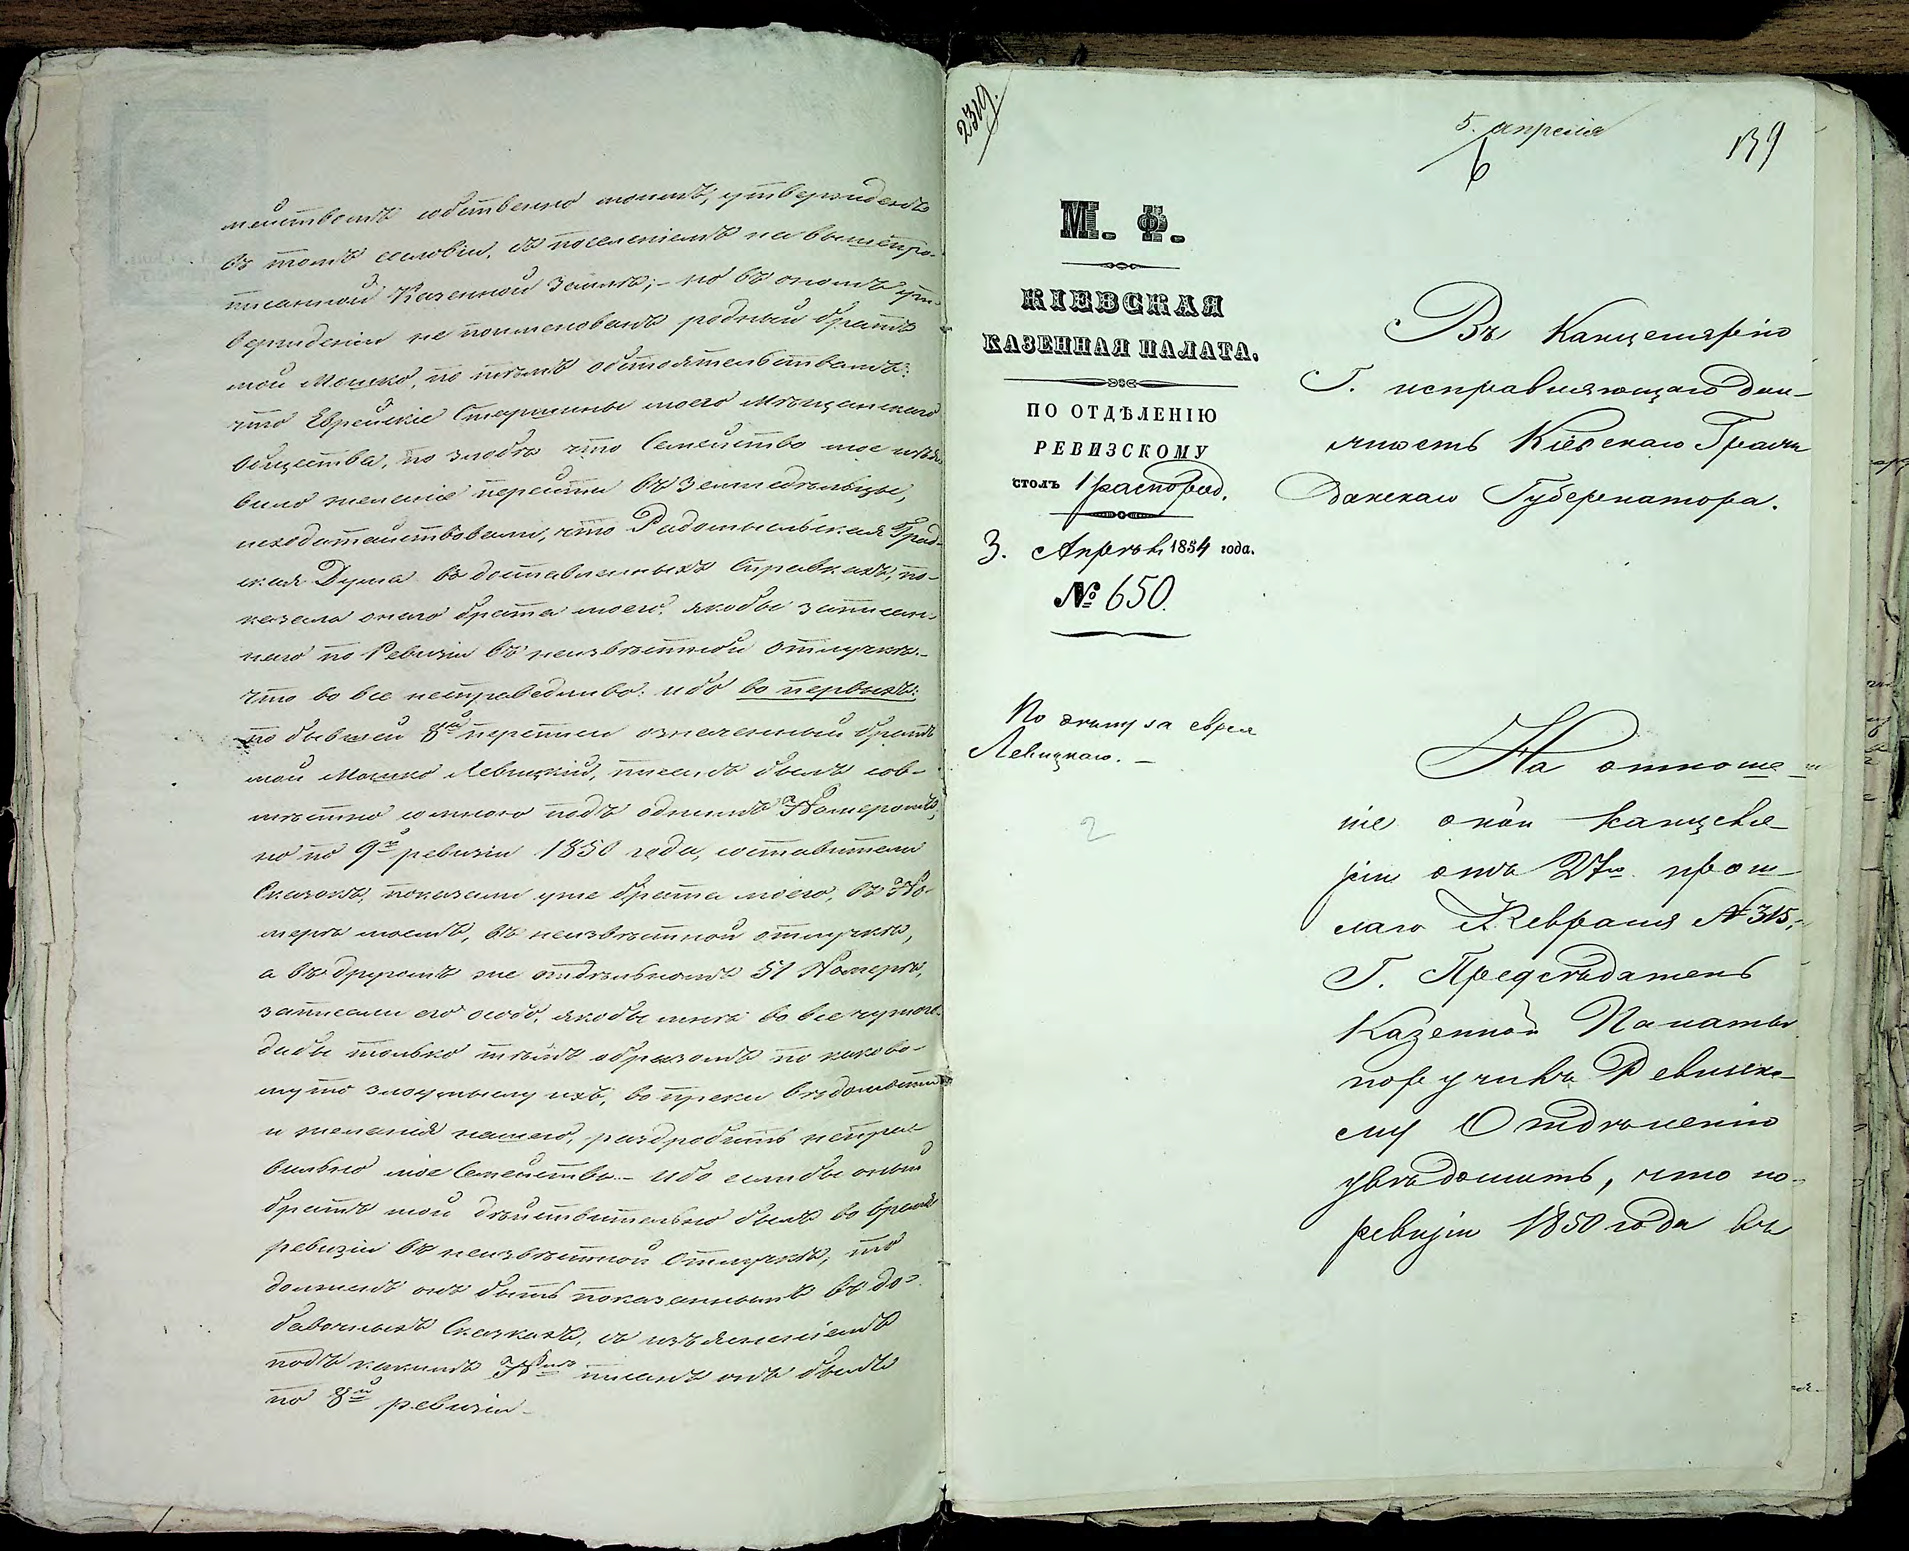 мействомъ собственно моимъ, утвержденъ
въ томъ сословіи, съ поселеніемъ на вышепро-
писанной Казенной землѣ; - но въ ономъ ут-
вержденіи не поименованъ родный братъ
мой Мошко, по тѣмъ обстоятельствамъ:
что Еврейскіе Старшины моего Мѣщанскаго
общества, по злобѣ что Семейство мое
было желаніе перейти въ Земледѣльцы,
исходатайствовали, что Радомысльская Град-
ская Дума въ доставленныхъ Справкахъ, по-
казала онаго брата моего, якобы записан-
наго по Ревизіи въ неизвѣстной отлучкѣ.-
что во все несправедливо: ибо во первыхъ:
по бывшей 8й переписи означенный братъ
мой Мошко Левицкій, писанъ былъ сов-
мѣстно со мною подъ однимъ Номеромъ,
но по 9й ревизіи 1850 года, составители
Сказокъ, показали уже брата моего, въ Но-
мерѣ моемъ, въ неизвѣстной отлучкѣ,
а въ другомъ же отдѣльномъ 51 Номерѣ,
записали его особо, якобы мнѣ во все чужого.
дабы только тѣмъ образомъ по каково-
му то злоумыслу ихъ, во преки вѣдомости
и желанія нашего, раздробить неправ-
вильно мое Семейство.- ибо если бы оный
братъ мой дѣйствительно былъ во время
ревизіи въ неизвѣстной отлучкѣ, то
долженъ онъ быть показаннымъ въ до-
бавочныхъ Сказкахъ, съ изъясненіемъ
подъ какимъ № писанъ онъ былъ
по 8й ревизіи.-
2319.
5. апрѣля
6
139
М. Ф.
КІЕВСКАЯ
КАЗЕННАЯ ПАЛАТА.
ПО ОТДѢЛЕНІЮ
РЕВИЗСКОМУ
столъ 1 распоряд.
3. Апрѣль 1854 года.
№ 650.
По иску за еврея
Левицкаго. -
2
Въ Канцелярію
Г. исправляющаго дол-
жность Кіевскаго Граж
данскаго Губернатора.
На отноше-
ніе оной Канцеля-
ріи отъ 27го прош-
лаго Февраля № 315,
Г. Предсѣдатель
Казенной Палаты
поручивъ Ревизско-
му Отдѣленію
увѣдомить, что по
ревизіи 1850 года въ